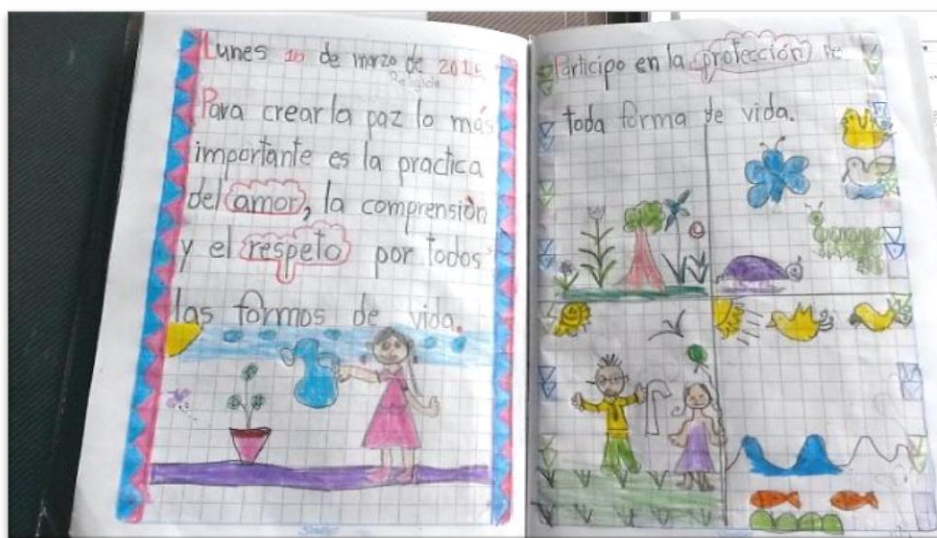 Lunes 16 de marzo de
Religión
Para crear la paz lo más
importante es la practica
del amor, la comprensión
y el respeto por todos
las formas de vida.
Participo en la protección de
toda forma de vida.